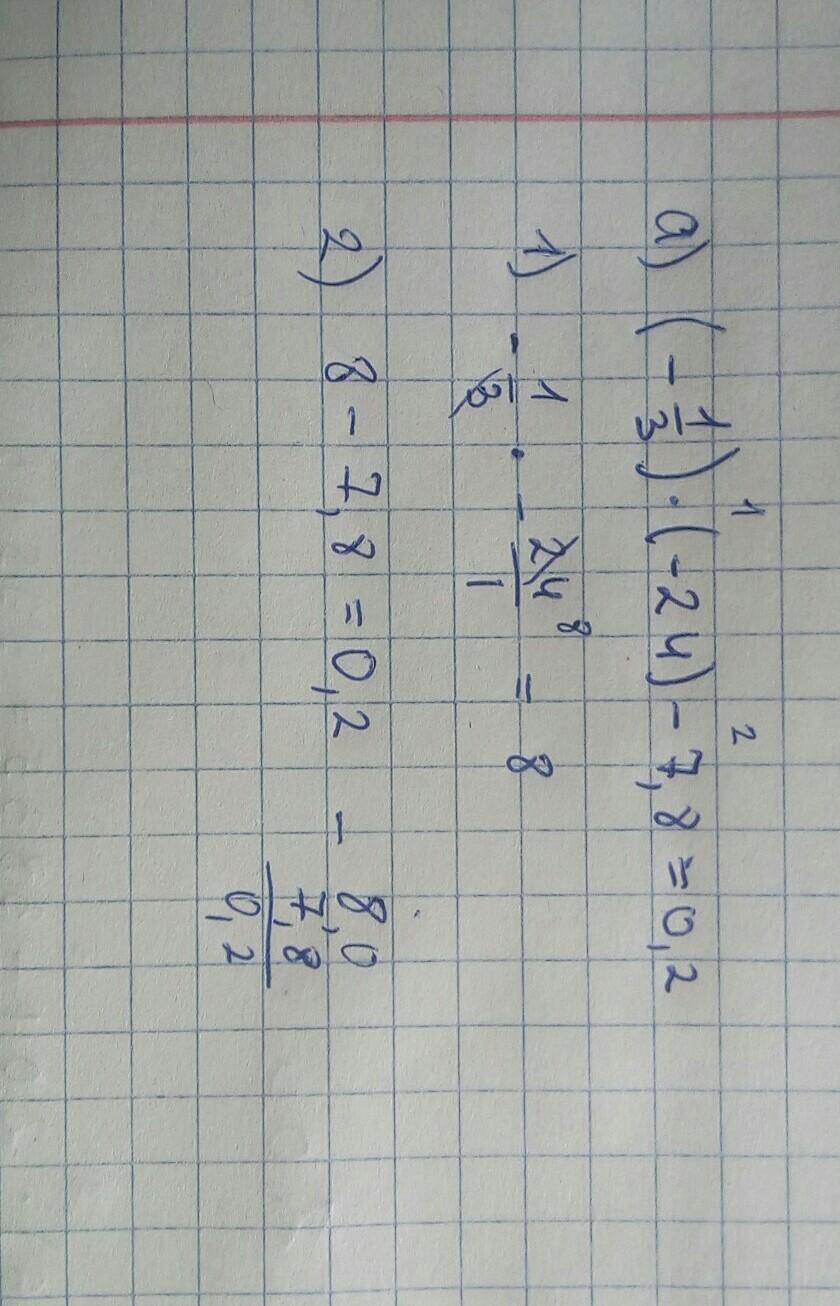 1 2
а) (-1/3) · (-24) - 7,8 = 0,2
1) - 1/3 · - 24/1 8 = 8
2) 8 - 7,8 = 0,2 - 8,0
7,8
0,2